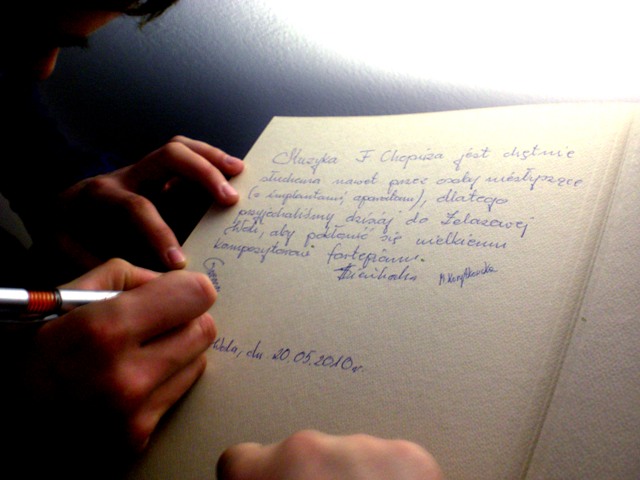 Muzyka F Chopina jest chętnie
słuchana nawet przez osoby niesłyszące
(z implantami, aparatami), dlatego
przyjechaliśmy dzisiaj do Żelazowej
Woli, aby pokłonić się wielkiemu
kompozytorowi fortepianu.
Wola, dn 20.05.2010r.